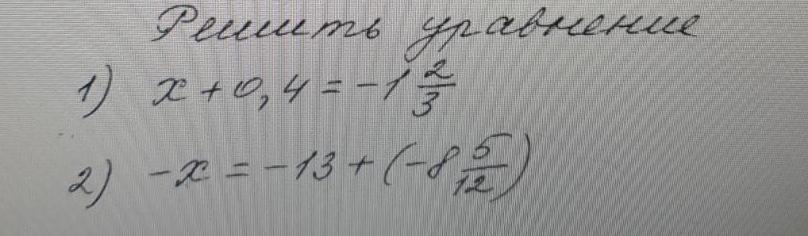 Решить уравнение
1) x + 0,4 = -1 2/3
2) -x = -13 + (-8 5/12)